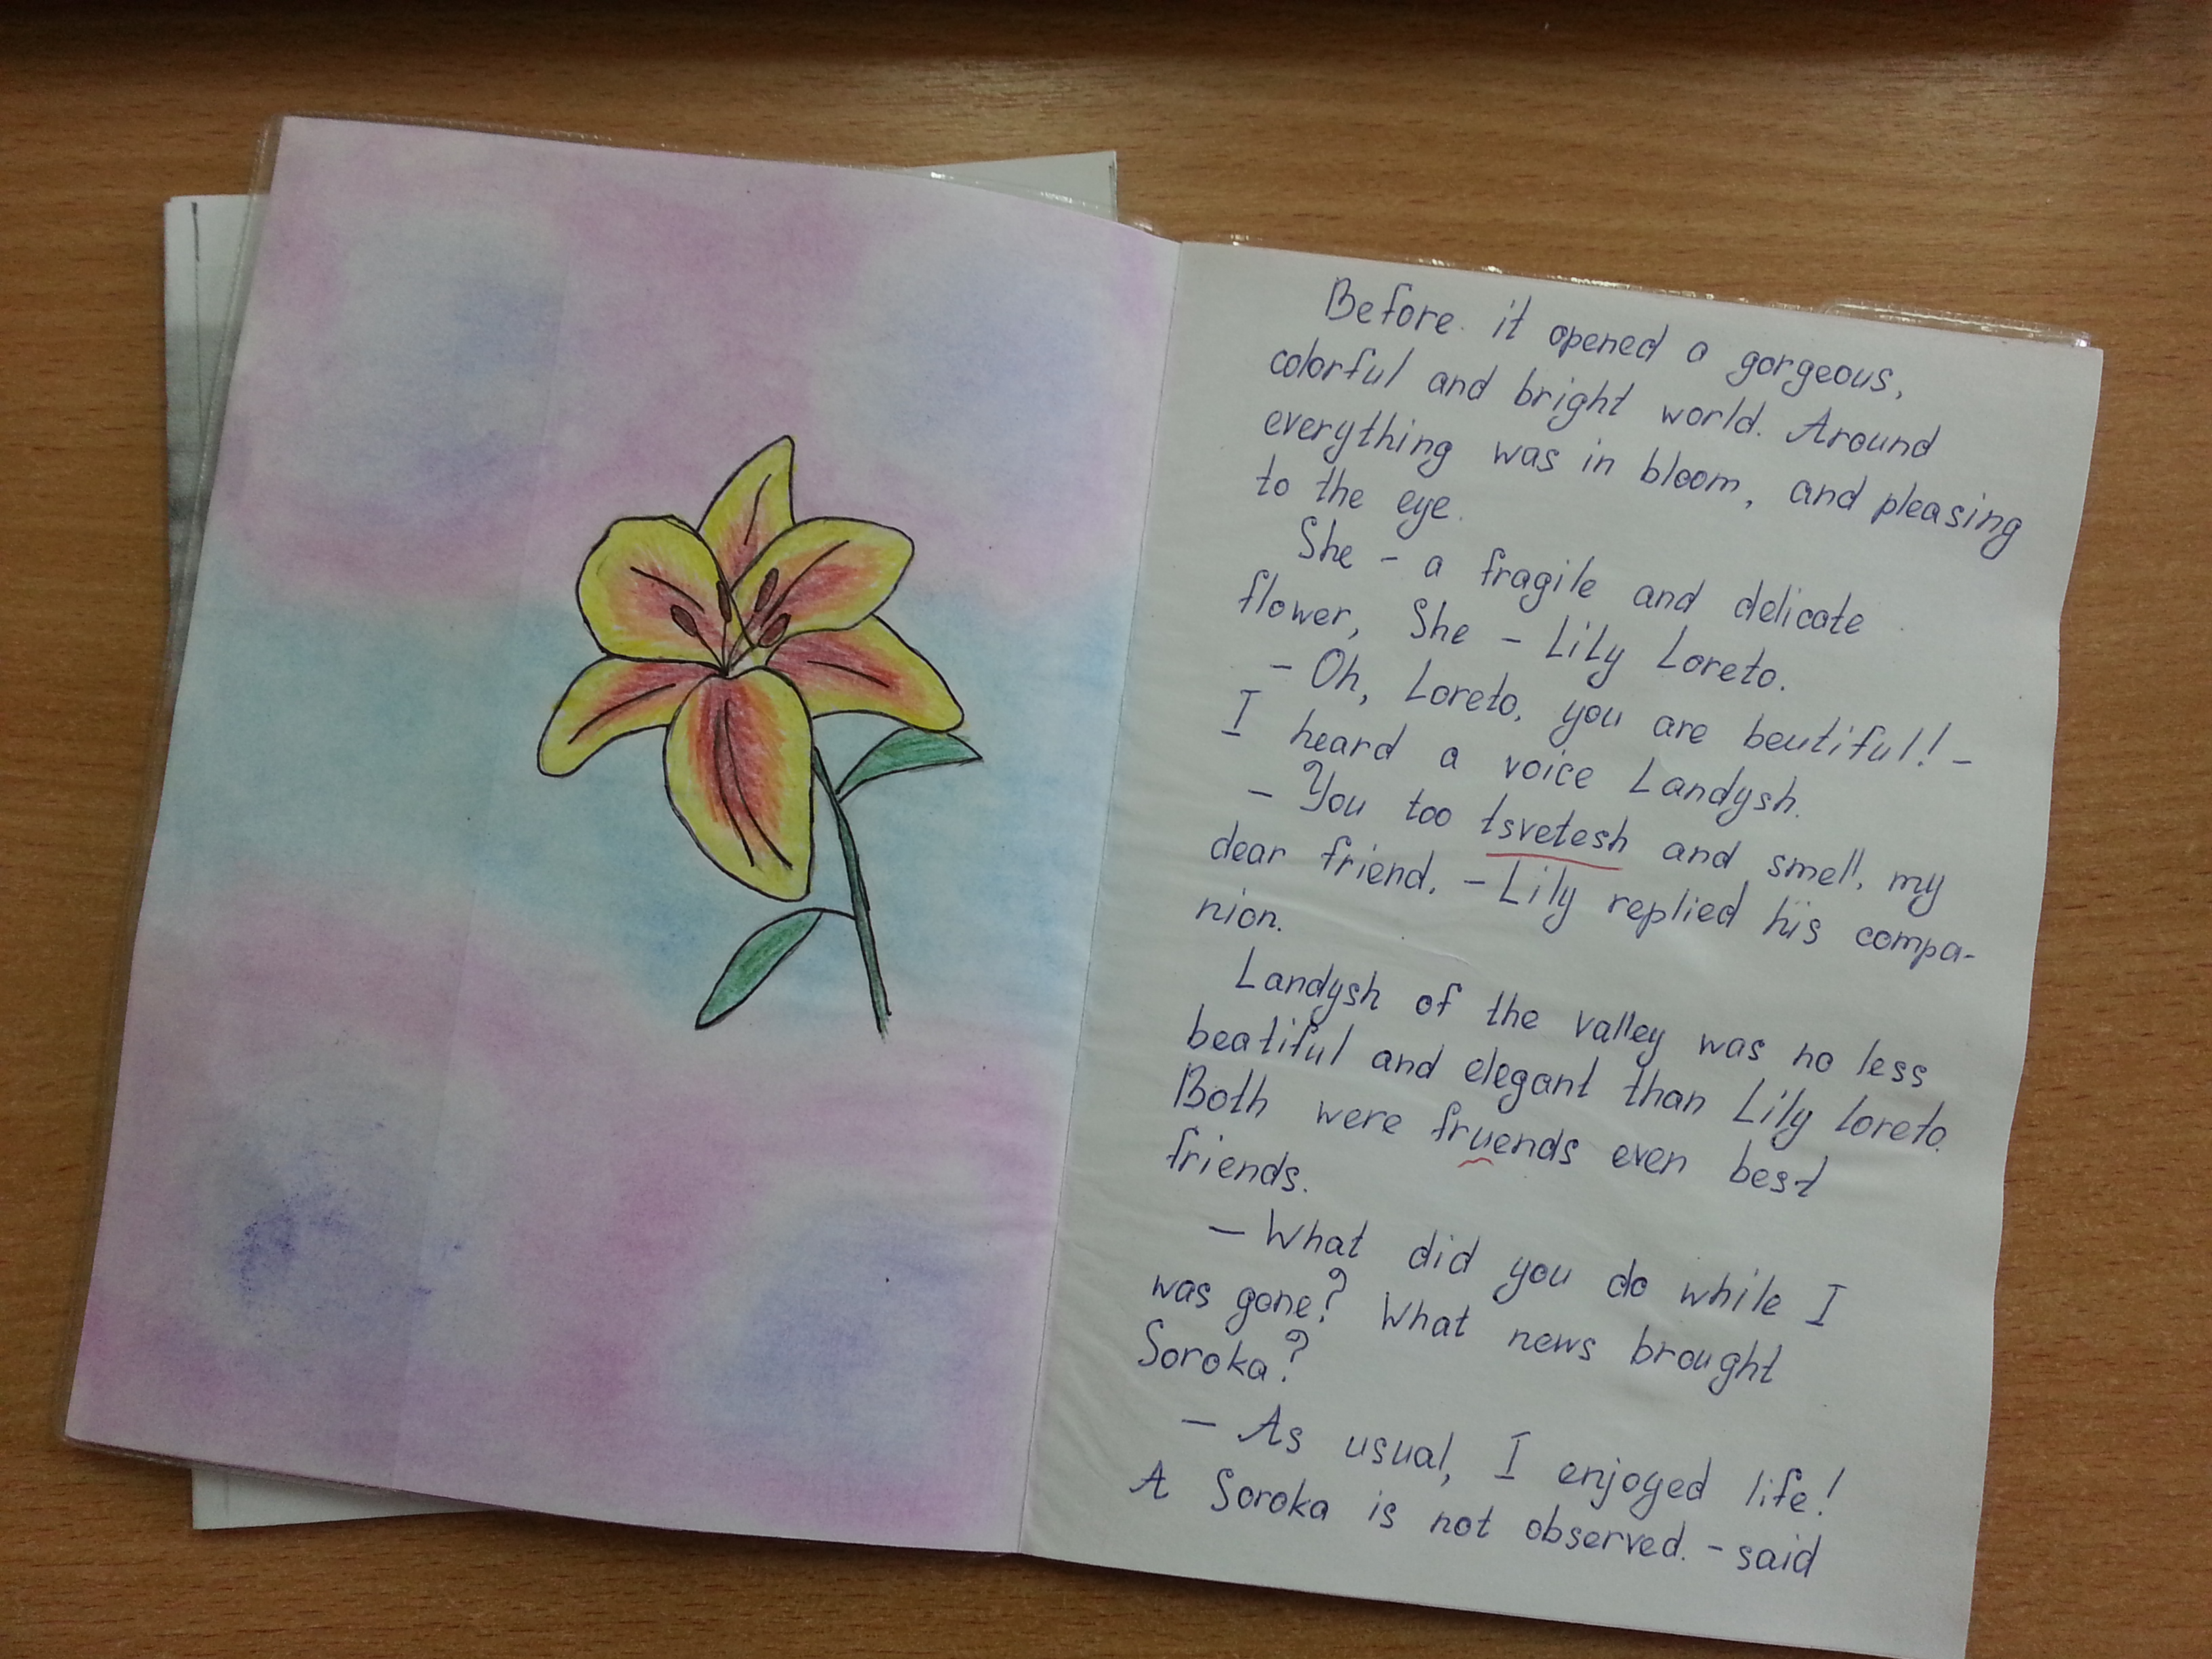 Before it opened a gorgeous,
colorful and bright world. Around
everything was in bloom, and pleasing
to the eye.
She - a fragile and delicate
flower, She - Lily Loreto.
- Oh, Loreto, you are beutiful! -
I heard a voice Landysh.
- You too tsvetesh and smell, my
dear friend. - Lily replied his compa-
nion.
Landysh of the valley was no less
beatiful and elegant than Lily loreto.
Both were fruends even best
friends.
- What did you do while I
was gone? What news brought
Soroka?
- As usual, I enjoyed life!
A Soroka is not observed. - said